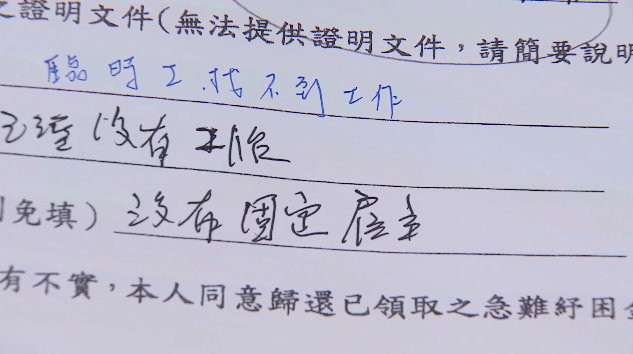 之證明文件(無法提供證明文件，請簡要說明
臨時工.找不到工作
已經沒有工作
免填) 沒有固定雇主
有不實，本人同意歸還已領取之急難紓困金